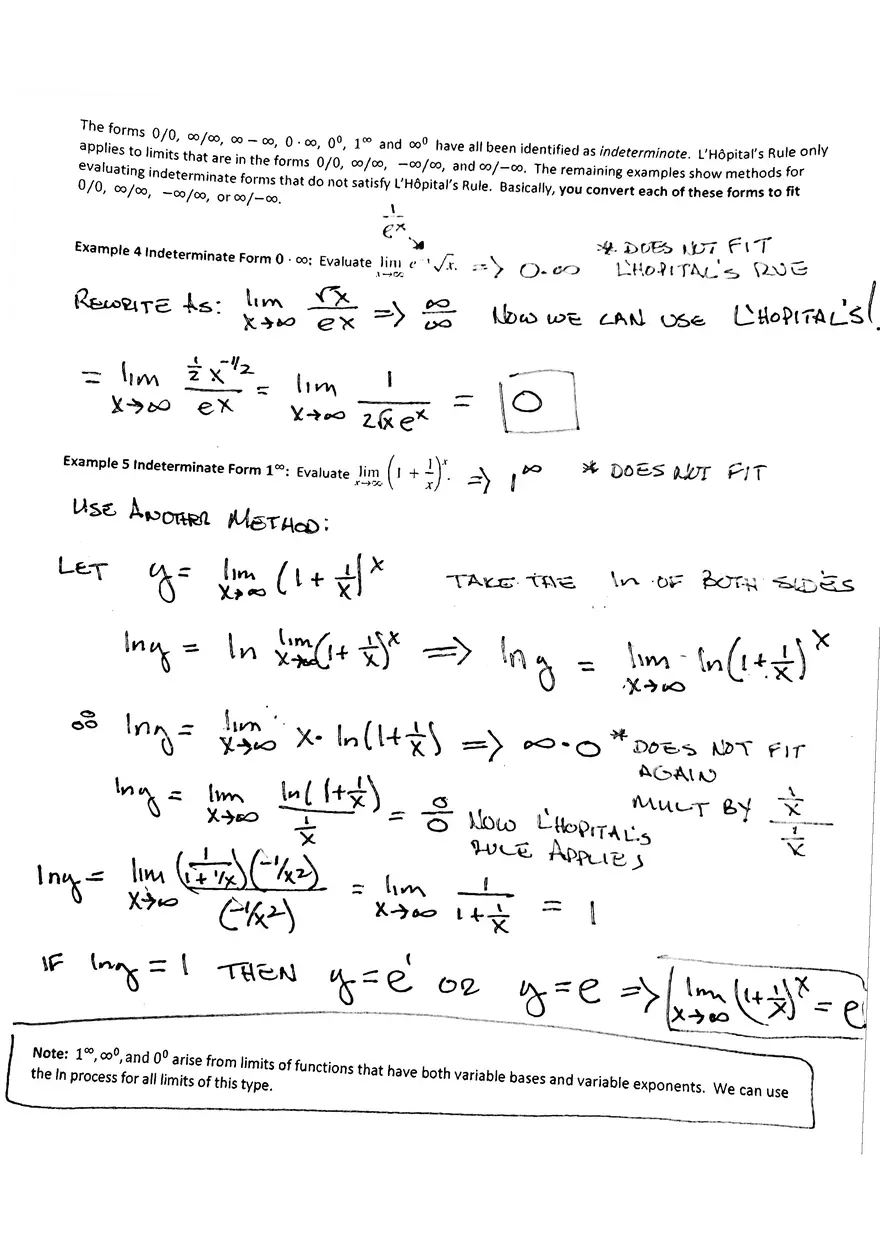 The forms 0/0, ∞/∞, ∞ − ∞, 0 · ∞, 0⁰, 1^∞ and ∞⁰ have all been identified as indeterminate. L'Hôpital's Rule only
applies to limits that are in the forms 0/0, ∞/∞, −∞/∞, and ∞/−∞. The remaining examples show methods for
evaluating indeterminate forms that do not satisfy L'Hôpital's Rule. Basically, you convert each of these forms to fit
0/0, ∞/∞, −∞/∞, or ∞/−∞.
1/e^x
Example 4 Indeterminate Form 0 · ∞: Evaluate lim x→∞ e^-x √x. => 0·∞ * DOES NOT FIT
L'HOPITAL'S RULE
REWRITE AS: lim x→∞ √x/e^x => ∞/∞ NOW WE CAN USE L'HOPITAL'S!
= lim x→∞ (1/2 x^-1/2)/e^x = lim x→∞ 1/(2√x e^x) = 0
Example 5 Indeterminate Form 1^∞: Evaluate lim x→∞ (1 + 1/x)^x. => 1^∞ * DOES NOT FIT
USE ANOTHER METHOD:
LET y = lim x→∞ (1 + 1/x)^x TAKE THE ln OF BOTH SIDES
lny = ln lim x→∞ (1 + 1/x)^x => ln y = lim x→∞ ln(1 + 1/x)^x
∴ lny = lim x→∞ x· ln(1 + 1/x) => ∞·0 * DOES NOT FIT
AGAIN
lny = lim x→∞ ln(1 + 1/x)/(1/x) = 0/0 NOW L'HOPITAL'S MULT BY (1/x)/(1/x)
RULE APPLIES
lny = lim x→∞ (1/(1 + 1/x))(-1/x²)/(-1/x²) = lim x→∞ 1/(1 + 1/x) = 1
IF lny = 1 THEN y = e^1 OR y = e => lim x→∞ (1 + 1/x)^x = e
Note: 1^∞, ∞⁰, and 0⁰ arise from limits of functions that have both variable bases and variable exponents. We can use
the ln process for all limits of this type.